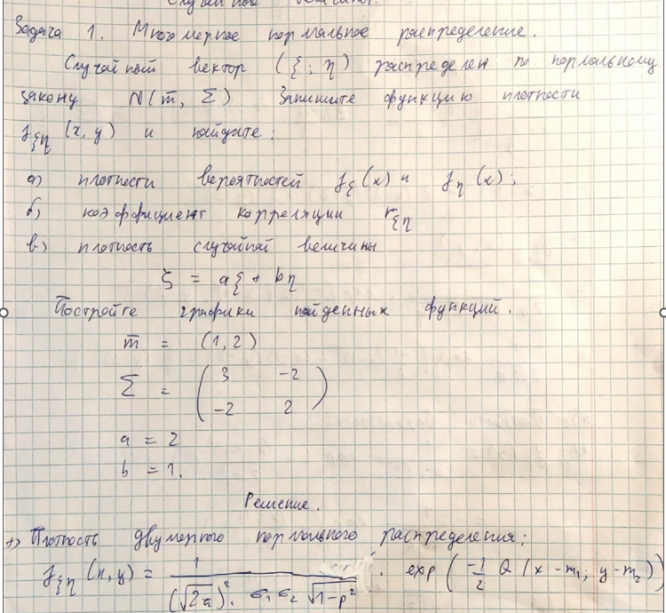 Задача 1. Многомерное нормальное распределение.
Случайный вектор (ξ; η) распределен по нормальному
закону N(m̄, Σ) Запишите функцию плотности
f_ξη (x, y) и найдите:
а) плотности вероятностей f_ξ(x) и f_η(x);
б) коэффициент корреляции r_ξη
в) плотность случайной величины
ζ = aξ + bη
Постройте графики найденных функций.
m̄ = (1, 2)
Σ = ( 3 -2
-2 2 )
a = 2
b = 1.
Решение.
Плотность двумерного нормального распределения:
f_ξη (x, y) = 1 / ((√2a)². σ₁ σ₂ √1-ρ²) · exp ( -1/2 Q (x - m₁; y - m₂))